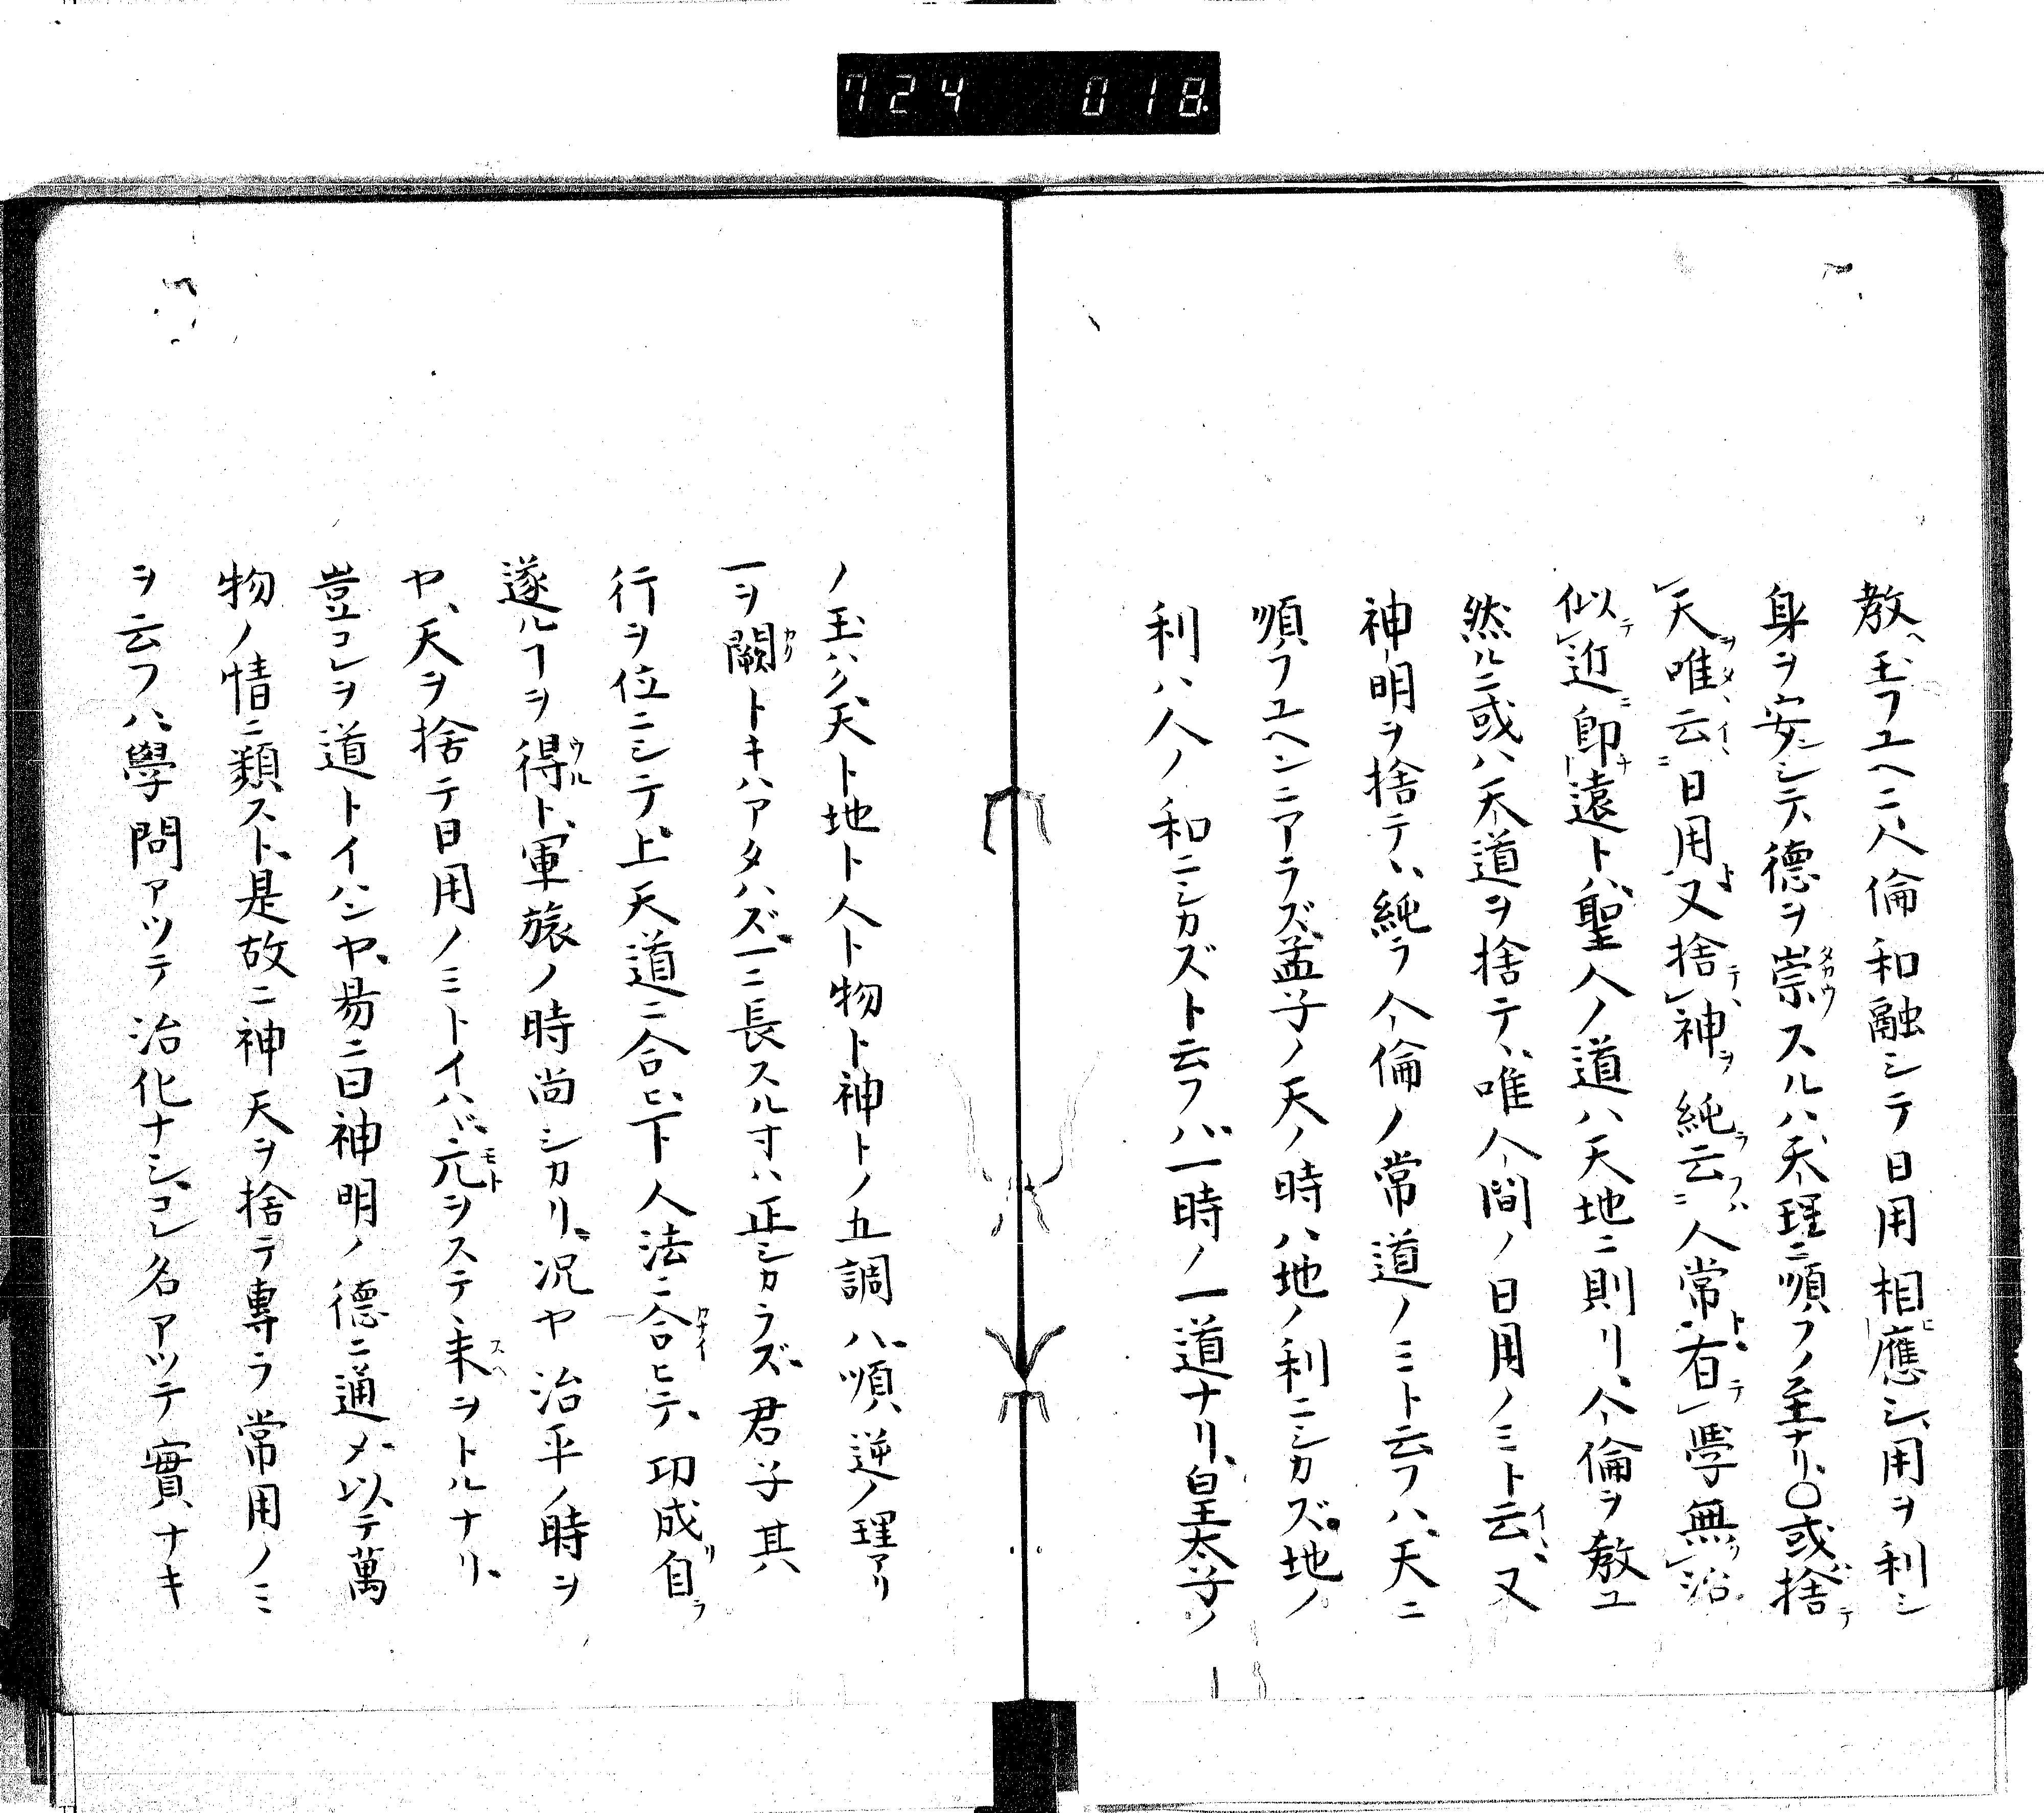 724 018
教ヘ玉フユヘニ、人倫和融シテ日用相應シ、用ヲ利シ
身ヲ安ンシテ、德ヲ崇スルハ、天理ニ順フノ至ナリ、〇或捨
天唯云日用又捨神純云人常有學無治
似近却遠トハ、聖人ノ道ハ天地ニ則リ、人倫ヲ教ユ
然ルニ或ハ天道ヲ捨テ、唯人間ノ日用ノミト云、又
神明ヲ捨テ、純ラ人倫ノ常道ノミト云フハ、天ニ
順フユヘンニアラズ、孟子ノ天ノ時ハ地ノ利ニシカズ、地ノ
利ハ人ノ和ニシカズト云フハ、一時ノ一道ナリ、皇太子ノ
ノ玉ハク、天ト地ト人ト物ト神トノ五調ハ、順逆ノ理アリ
一ヲ闕トキハアタハズ、一ニ長スル寸ハ正シカラズ、君子其
行ヲ位ニシテ、上天道ニ合ヒ、下人法ニ合ヒテ、功成自ラ
遂ルヿヲ得ト、軍旅ノ時尚シカリ、况ヤ治平ノ時ヲ
ヤ、天ヲ捨テ日用ノミトイハヾ、元ヲステ、末ヲトルナリ、
豈コレヲ道トイハンヤ、易ニ曰神明ノ德ニ通メ、以テ萬
物ノ情ニ類スト、是故ニ神天ヲ捨テ專ラ常用ノミ
ヲ云フハ、學問アツテ治化ナシ、コレ名アツテ實ナキ